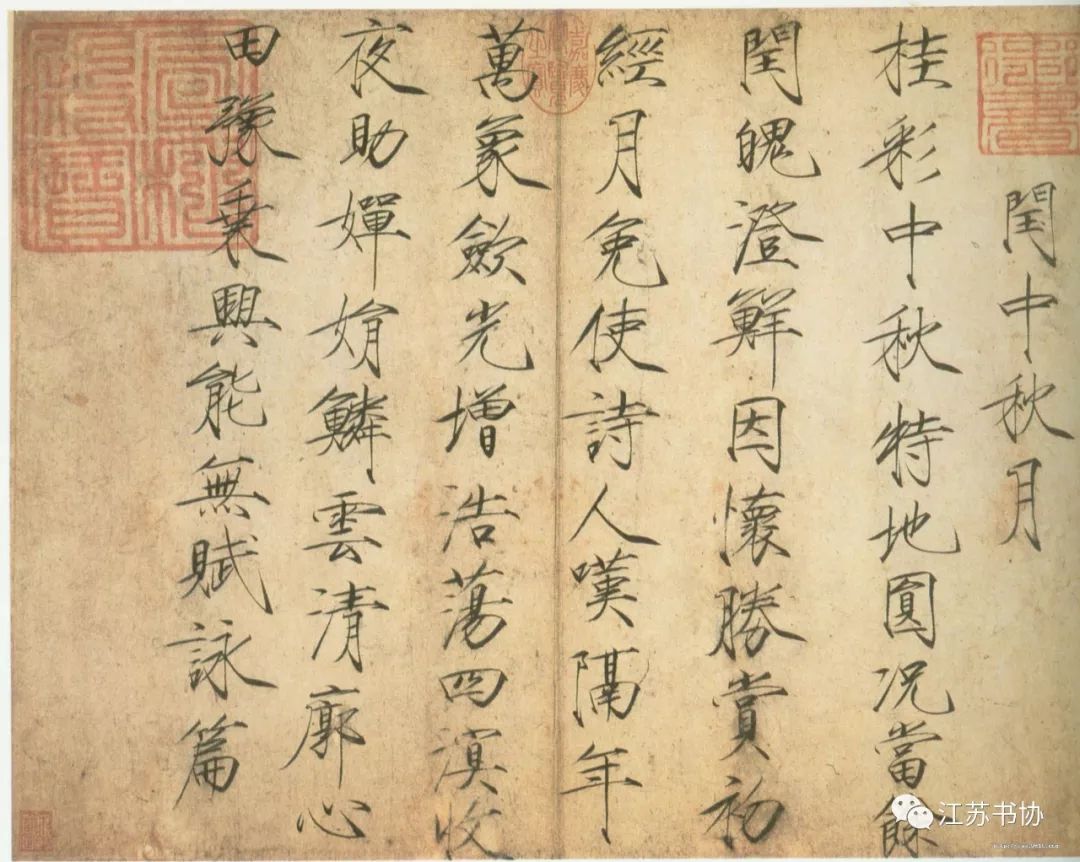 閏中秋月
桂彩中秋特地圓况當餘
閏魄澄鮮因懷勝賞初
經月免使詩人嘆隔年
萬象歛光增浩蕩四溟收
夜助嬋娟鱗雲清廓心
田豫乘興能無賦詠篇
御書
江苏书协